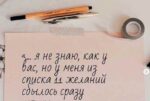 «... я не знаю, как у
вас, но у меня из
списка 11 желаний
сбылось сразу